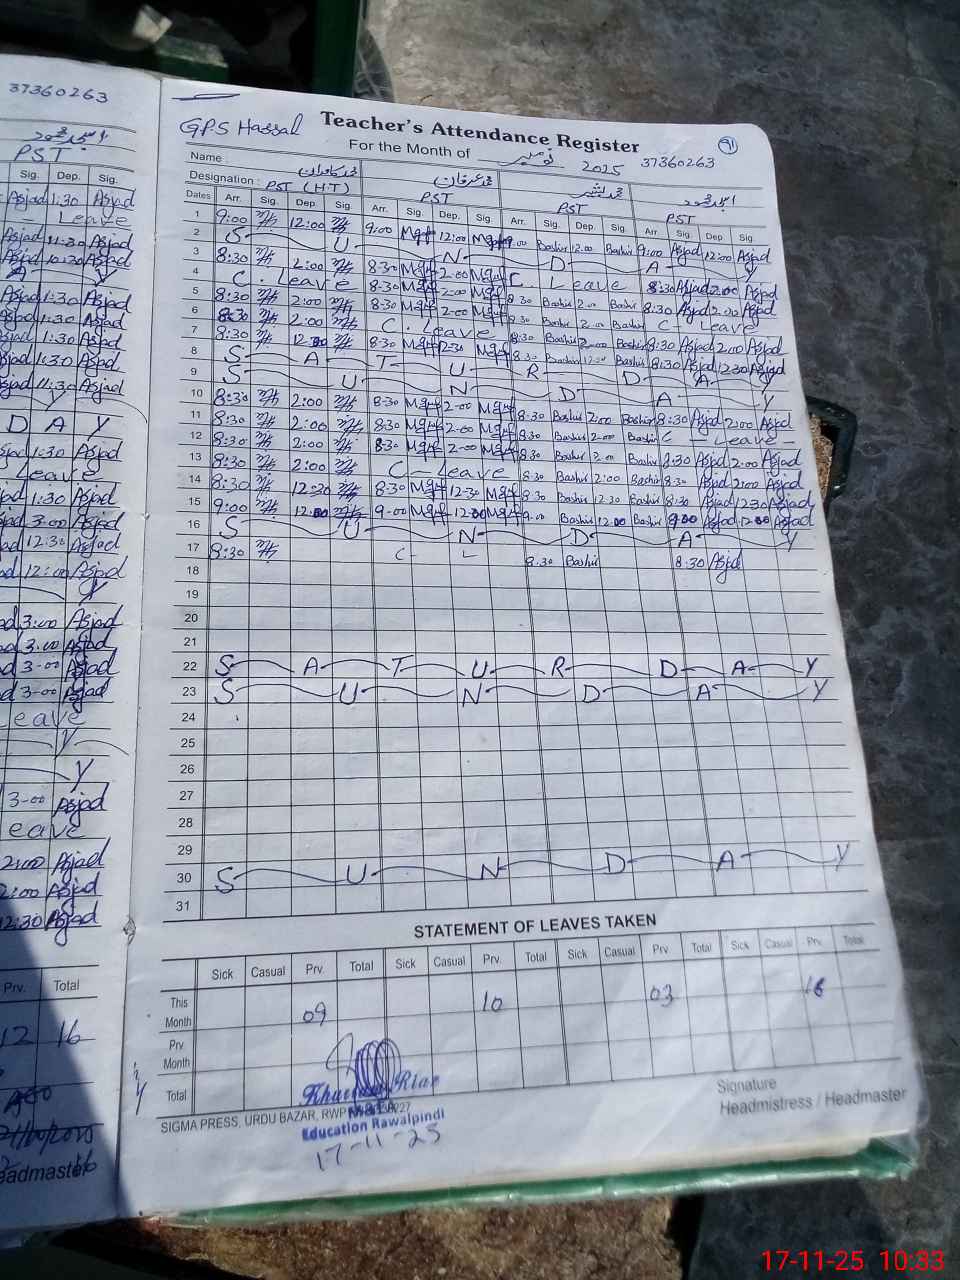 37360263
PST
Sig. Dep. Sig.
Asjad 1:30 Asjad
Leave
Asjad 11:30 Asjad
Asjad 10:30 Asjad
Asjad 1:30 Asjad
1:30 Asjad
1:30 Asjad
1:30 Asjad
Asjad 11:30 Asjad
D A Y
1:30 Asjad
Leave
1:30 Asjad
3:00 Asjad
12:30 Asjad
12:00 Asjad
3:00 Asjad
3:00 Asjad
3-00 Asjad
3-00 Asjad
eave
Y
Y
3-00 Asjad
eave
2:00 Asjad
2:00 Asjad
12:30 Asjad
Prv. Total
12 16
eadmaster
G.P.S Hassal Teacher's Attendance Register 91
For the Month of نومبر 2025 37360263
Name : محمد کامران محمد عرفان محمد بشیر
Designation : PST (H.T) PST PST PST
Dates Arr. Sig. Dep. Sig. Arr. Sig. Dep. Sig. Arr. Sig. Dep. Sig. Arr. Sig. Dep. Sig.
1 9:00 12:00 9:00 12:00 9.00 Bashir 12.00 Bashir 9:00 Asjad 12:00 Asjad
2 S U N D A Y
3 8:30 2:00 8-30 2-00 C. Leave 8:30 Asjad 2:00 Asjad
4 C. Leave 8-30 2-00 8 30 Bashir 2.00 Bashir 8:30 Asjad 2:00 Asjad
5 8:30 2:00 8-30 2-00 8.30 Bashir 2.00 Bashir C - Leave
6 8:30 2:00 C. Leave 8:30 Bashir 2:00 Bashir 8:30 Asjad 2:00 Asjad
7 8:30 12:30 8-30 12-30 8-30 Bashir 12:30 Bashir 8:30 Asjad 12:30 Asjad
8 S A T U R D A Y
9 S U N D A Y
10 8:30 2:00 8-30 2-00 8:30 Bashir 2:00 Bashir 8:30 Asjad 2:00 Asjad
11 8:30 2:00 8-30 2-00 8.30 Bashir 2-00 Bashir C - Leave -
12 8:30 2:00 8-30 2-00 8.30 Bashir 2.00 Bashir 8:30 Asjad 2:00 Asjad
13 8:30 2:00 C - Leave 8.30 Bashir 2:00 Bashir 8:30 Asjad 2:00 Asjad
14 8:30 12:30 8-30 12-30 8.30 Bashir 12.30 Bashir 8:30 Asjad 12:30 Asjad
15 9:00 12:00 9-00 12-00 9.00 Bashir 12.00 Bashir 9:00 Asjad 12:00 Asjad
16 S U N D A Y
17 8:30 C - L 8.30 Bashir 8:30 Asjad
18
19
20
21
22 S A T U R D A Y
23 S U N D A Y
24
25
26
27
28
29
30 S U N D A Y
31
STATEMENT OF LEAVES TAKEN
Sick Casual Prv. Total Sick Casual Prv. Total Sick Casual Prv. Total Sick Casual Prv. Total
This Month 09 10 03 16
Prv Month
Total
Signature
Headmistress / Headmaster
SIGMA PRESS, URDU BAZAR, RWP
Education Rawalpindi
17-11-25
17-11-25 10:33